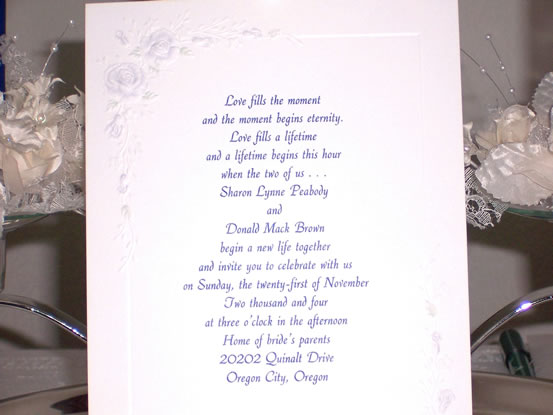 Love fills the moment
and the moment begins eternity.
Love fills a lifetime
and a lifetime begins this hour
when the two of us . . .
Sharon Lynne Peabody
and
Donald Mack Brown
begin a new life together
and invite you to celebrate with us
on Sunday, the twenty-first of November
Two thousand and four
at three o'clock in the afternoon
Home of bride's parents
20202 Quinalt Drive
Oregon City, Oregon